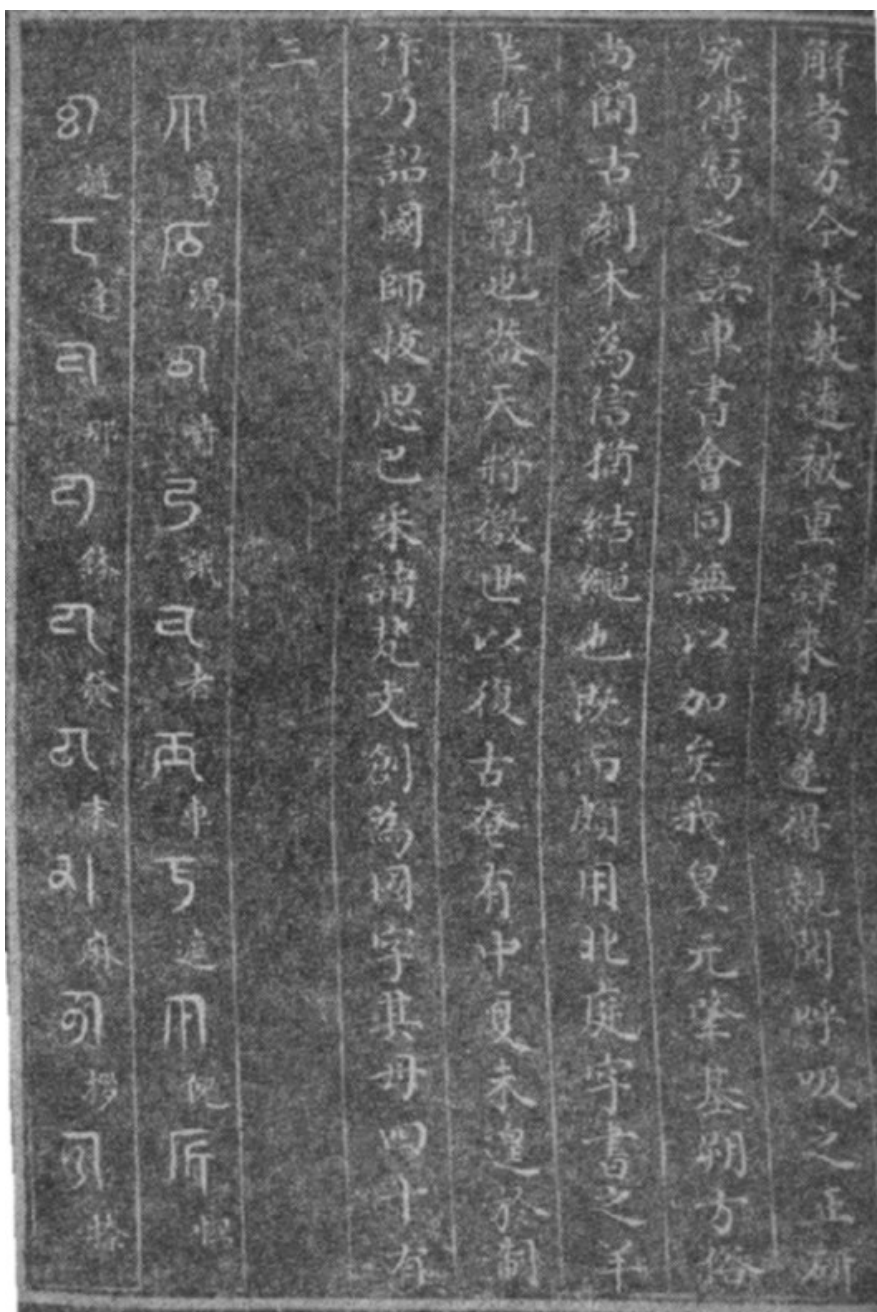 解者方今聲教遐被重譯來朝遂得親聞呼吸之正研
究傳寫之誤車書會同無以加矣我皇元肇基朔方俗
尚簡古刻木為信猶結繩也既而頗用北庭字書之羊
革猶竹簡也蓋天將徵世以復古奄有中夏未遑於制
作乃詔國師拔思巴采諸梵文創為國字其母四十有
三
ꡀ葛ꡁ渴ꡂꡃ誐ꡄ者ꡅ車ꡆ遮ꡇ倪ꡈ怛
ꡉ撻ꡊ達ꡋ那ꡌ鉢ꡍ發ꡎ末ꡏ麻ꡐ拶ꡑ擦